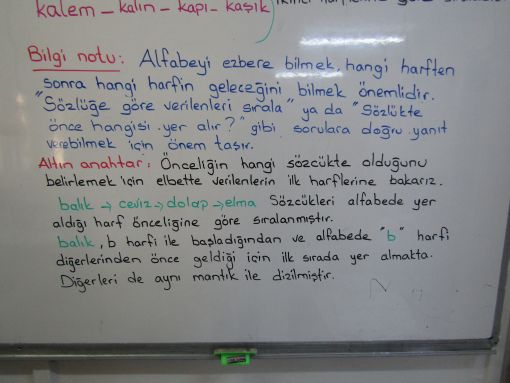 kalem - kalın - kapı - kaşık
Bilgi notu: Alfabeyi ezbere bilmek, hangi harften
sonra hangi harfin geleceğini bilmek önemlidir.
"Sözlüğe göre verilenleri sırala" ya da "Sözlükte
önce hangisi yer alır?" gibi sorulara doğru yanıt
verebilmek için önem taşır.
Altın anahtar: Önceliğin hangi sözcükte olduğunu
belirlemek için elbette verilenlerin ilk harflerine bakarız.
balık → ceviz → dolap → elma Sözcükleri alfabede yer
aldığı harf önceliğine göre sıralanmıştır.
balık, b harfi ile başladığından ve alfabede "b" harfi
diğerlerinden önce geldiği için ilk sırada yer almakta.
Diğerleri de aynı mantık ile dizilmiştir.